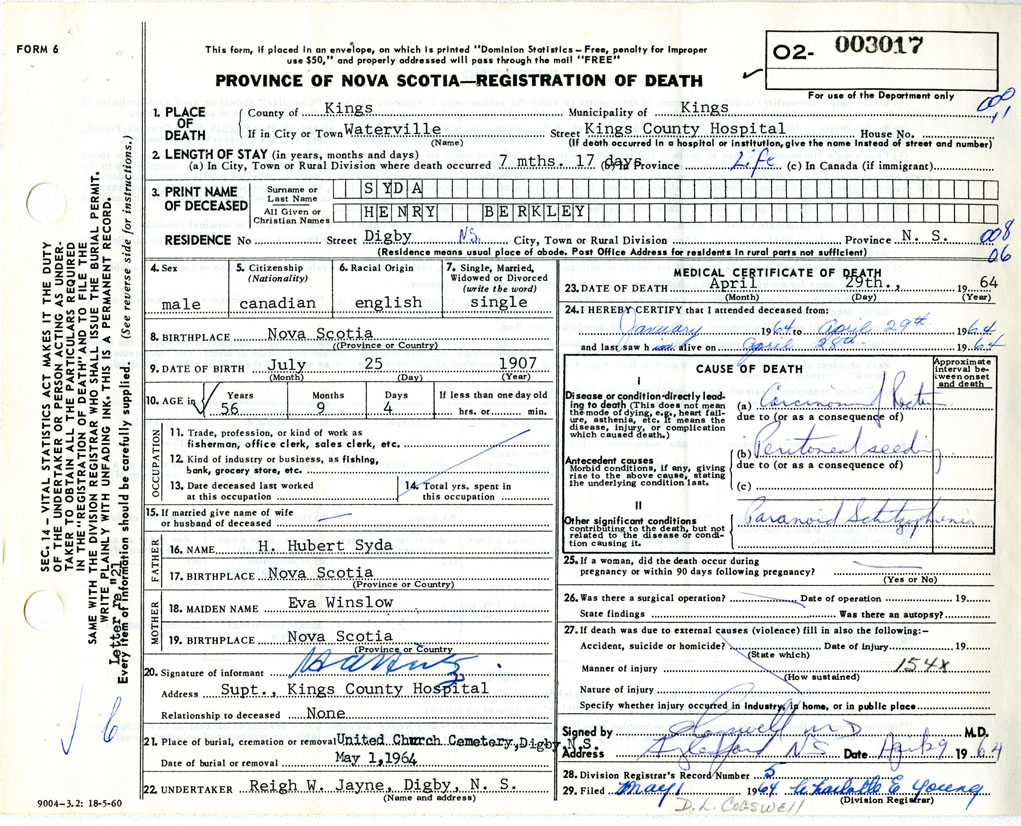 FORM 6
This form, if placed in an envelope, on which is printed "Dominion Statistics – Free, penalty for improper
use $50," and properly addressed will pass through the mail "FREE"
PROVINCE OF NOVA SCOTIA—REGISTRATION OF DEATH
02- 003017
For use of the Department only
1. PLACE OF DEATH
County of Kings Municipality of Kings
If in City or Town Waterville Street Kings County Hospital House No.
(Name) (If death occurred in a hospital or institution, give the name instead of street and number)
2. LENGTH OF STAY (in years, months and days)
(a) In City, Town or Rural Division where death occurred 7 mths. 17 days (b) In Province Life (c) In Canada (if immigrant)
3. PRINT NAME OF DECEASED
Surname or Last Name SYDA
All Given or Christian Names HENRY BERKLEY
RESIDENCE No Street Digby N.S. City, Town or Rural Division Province N. S. 008
(Residence means usual place of abode. Post Office Address for residents in rural parts not sufficient) 06
4. Sex male
5. Citizenship (Nationality) canadian
6. Racial Origin english
7. Single, Married, Widowed or Divorced (write the word) single
8. BIRTHPLACE Nova Scotia
(Province or Country)
9. DATE OF BIRTH July 25 1907
(Month) (Day) (Year)
10. AGE in Years Months Days If less than one day old
56 9 4 hrs. or min.
OCCUPATION
11. Trade, profession, or kind of work as
fisherman, office clerk, sales clerk, etc.
12. Kind of industry or business, as fishing,
bank, grocery store, etc.
13. Date deceased last worked
at this occupation
14. Total yrs. spent in
this occupation
15. If married give name of wife
or husband of deceased
FATHER
16. NAME H. Hubert Syda
17. BIRTHPLACE Nova Scotia
(Province or Country)
MOTHER
18. MAIDEN NAME Eva Winslow
19. BIRTHPLACE Nova Scotia
(Province or Country)
20. Signature of informant
Address Supt., Kings County Hospital
Relationship to deceased None
21. Place of burial, cremation or removal United Church Cemetery, Digby N.S.
Date of burial or removal May 1, 1964
22. UNDERTAKER Reigh W. Jayne, Digby, N. S.
(Name and address)
9004-3.2: 18-5-60
MEDICAL CERTIFICATE OF DEATH
23. DATE OF DEATH April 29th., 19 64
(Month) (Day) (Year)
24. I HEREBY CERTIFY that I attended deceased from:
January 1964 to April 29th 1964
and last saw him alive on April 28th 1964
CAUSE OF DEATH
Approximate interval between onset and death
I
Disease or condition directly leading to death (This does not mean the mode of dying, e.g., heart failure, asthenia, etc. It means the disease, injury, or complication which caused death.)
(a) Carcinoma of Rectum
due to (or as a consequence of)
Antecedent causes
Morbid conditions, if any, giving rise to the above cause, stating the underlying condition last.
(b) Peritoneal seeding
due to (or as a consequence of)
(c)
II
Other significant conditions
contributing to the death, but not related to the disease or condition causing it.
Paranoid Schitzophrenia
25. If a woman, did the death occur during
pregnancy or within 90 days following pregnancy?
(Yes or No)
26. Was there a surgical operation? Date of operation 19
State findings Was there an autopsy?
27. If death was due to external causes (violence) fill in also the following:–
Accident, suicide or homicide? Date of injury 19
(State which)
Manner of injury 154X
(How sustained)
Nature of injury
Specify whether injury occurred in Industry, in home, or in public place
Signed by M.D.
Address NS Date April 29 1964
28. Division Registrar's Record Number 5
29. Filed May 1 1964 Charlotte E Young
(Division Registrar)
D. L. COGSWELL
SEC. 14 – VITAL STATISTICS ACT MAKES IT THE DUTY
OF THE UNDERTAKER OR PERSON ACTING AS UNDER-
TAKER TO OBTAIN ALL THE PARTICULARS REQUIRED
IN THE "REGISTRATION OF DEATH" AND TO FILE THE
SAME WITH THE DIVISION REGISTRAR WHO SHALL ISSUE THE BURIAL PERMIT.
WRITE PLAINLY WITH UNFADING INK. THIS IS A PERMANENT RECORD.
Letter re "21
Every item of information should be carefully supplied. (See reverse side for instructions.)
6